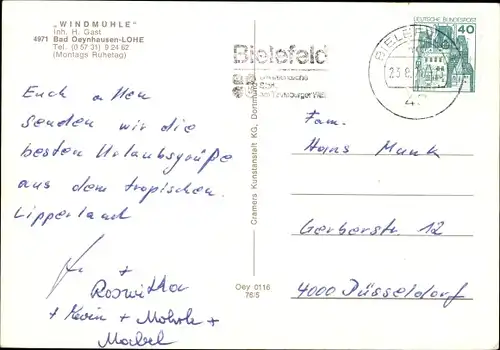 „WINDMÜHLE"
Inh. H. Gast
4971 Bad Oeynhausen-LOHE
Tel. (0 57 31) 9 24 62
(Montags Ruhetag)
Euch allen
senden wir die
besten Urlaubsgrüße
aus dem tropischen
Lipperland
+
Roswitha
+ Kevin + +
Mabel
Cramers Kunstanstalt KG, Dortmund
Oey 0116
76/5
Bielefeld
Teutoburger Wald
BIELEFELD
23.8.
DEUTSCHE BUNDESPOST
40
Fam.
Hans Munk
Gerberstr. 12
4000 Düsseldorf